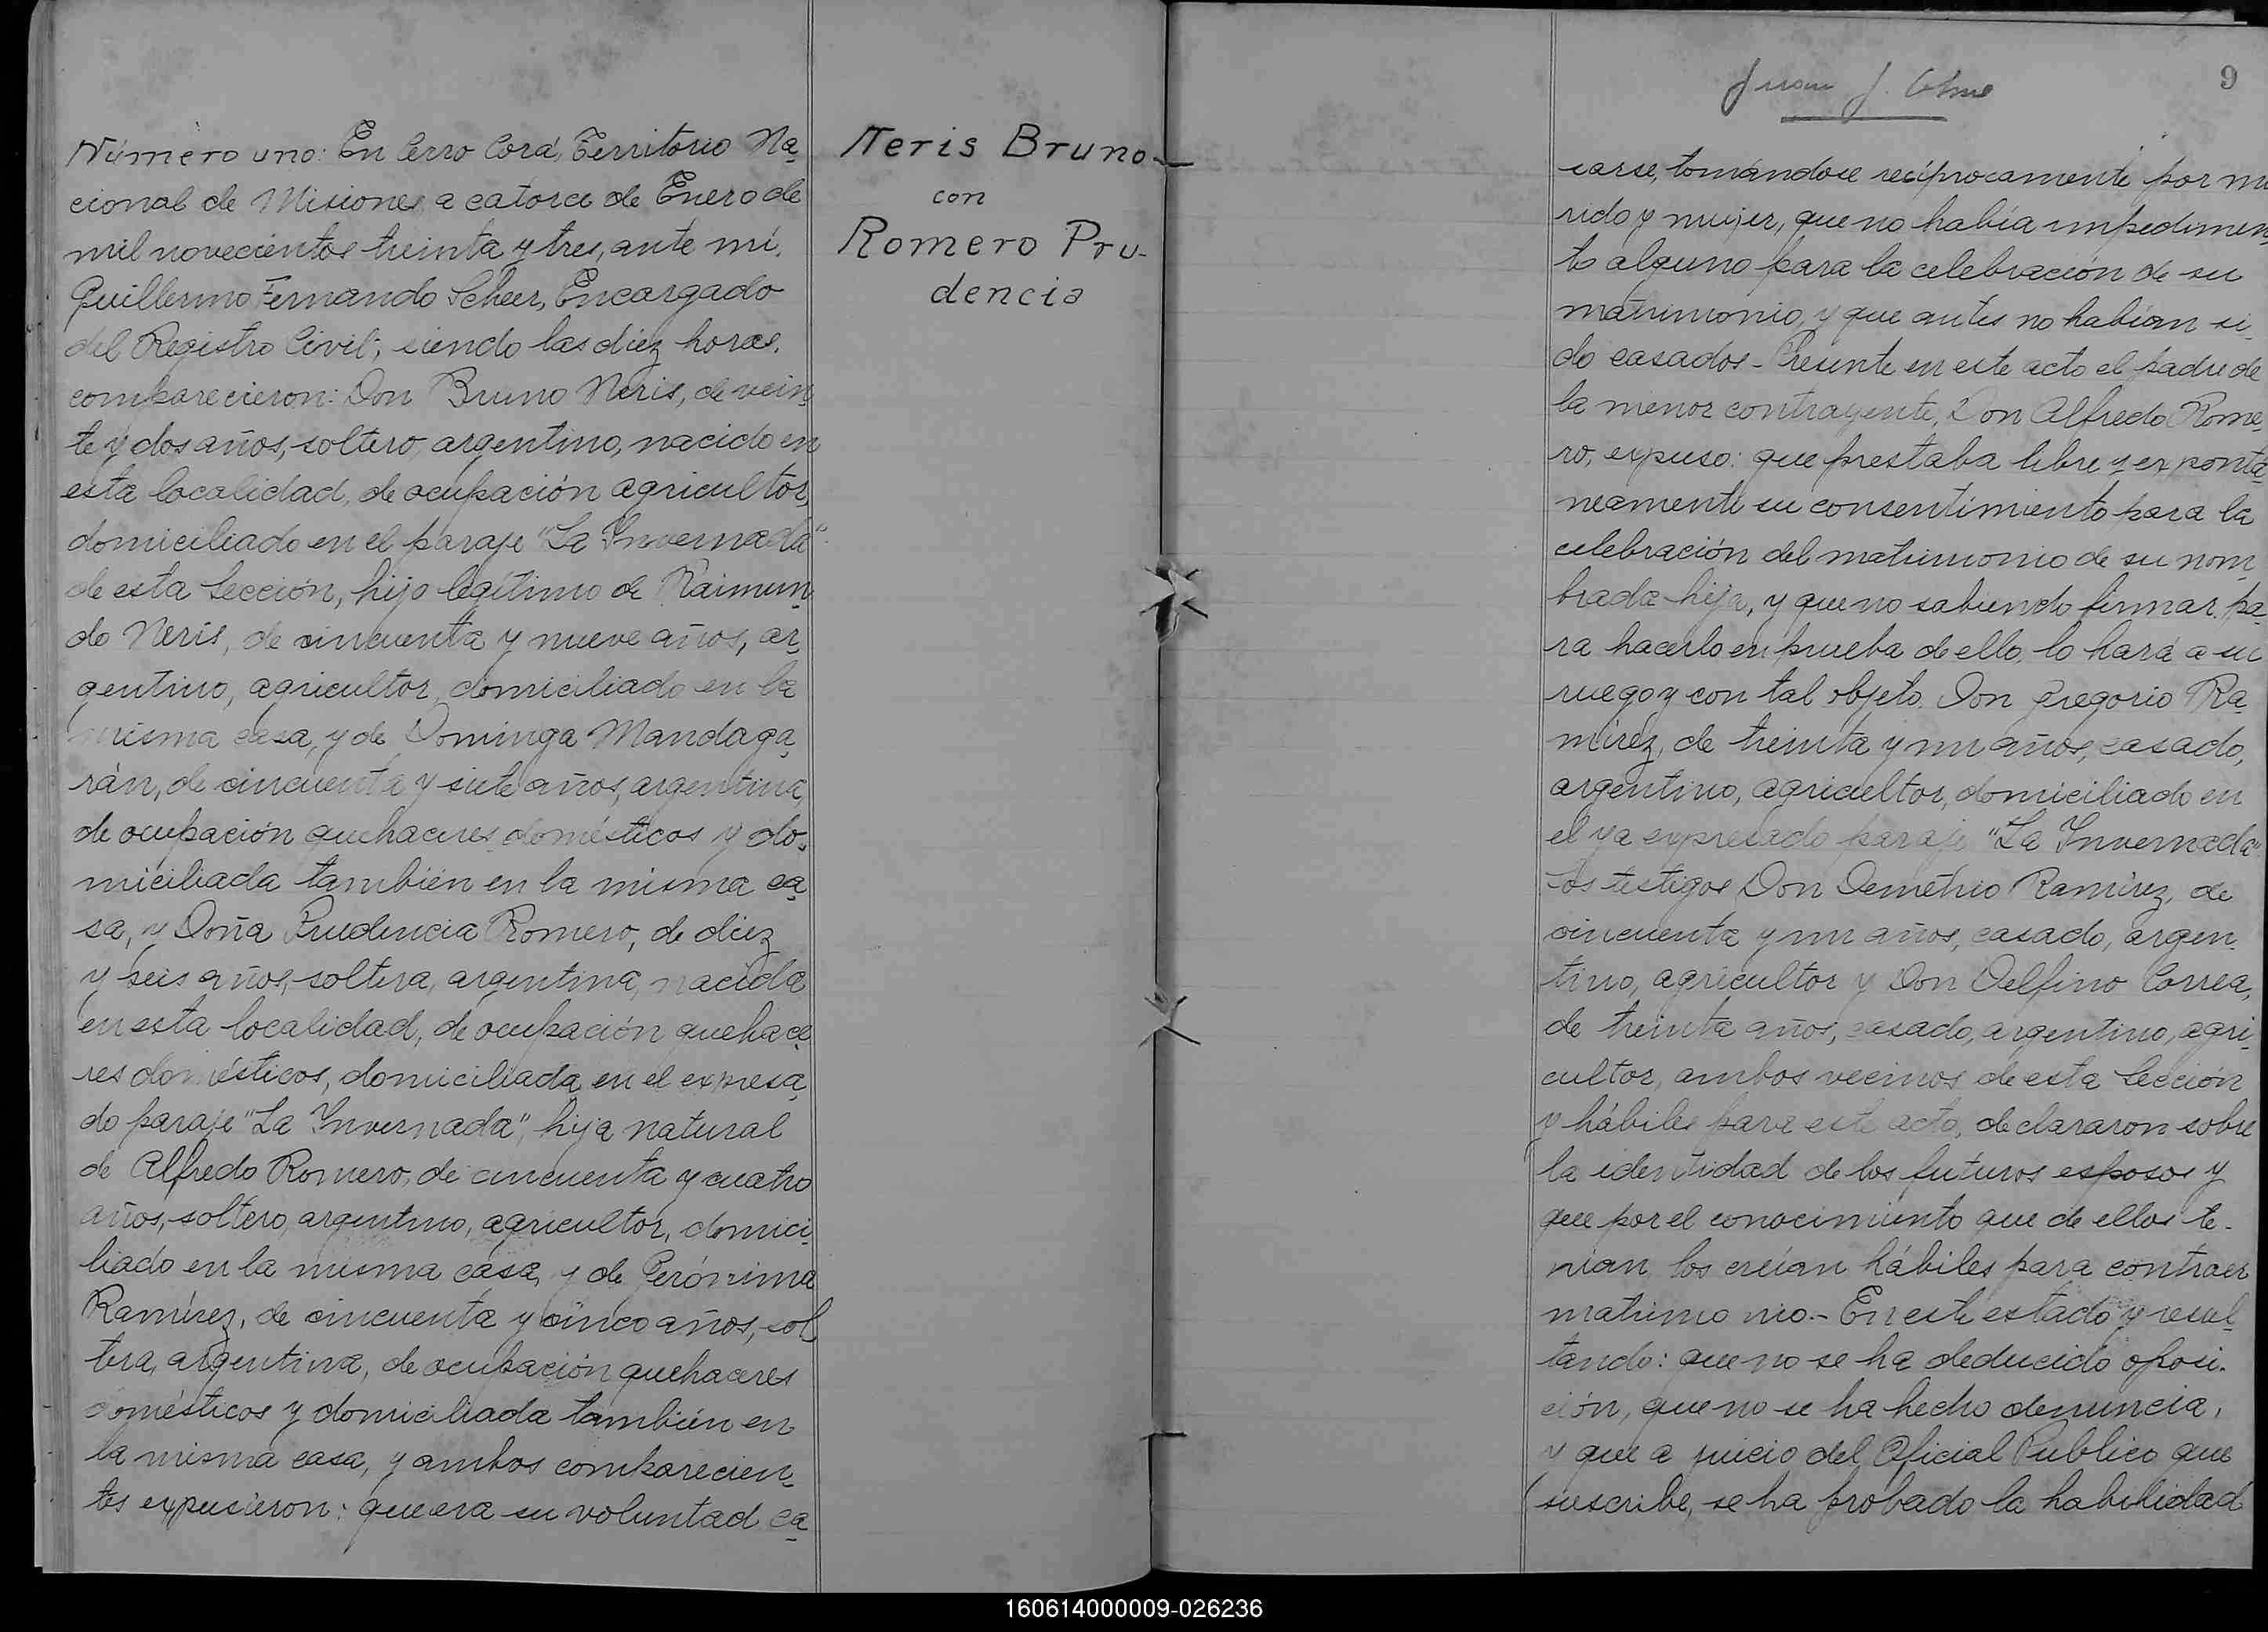 Número uno: En Cerro Corá, Territorio Na-
cional de Misiones, a catorce de Enero de
mil novecientos treinta y tres, ante mí,
Guillermo Fernando Scheer, Encargado
del Registro Civil; siendo las diez horas,
comparecieron: Don Bruno Neris, de vein-
te y dos años, soltero, argentino, nacido en
esta localidad, de ocupación agricultor,
domiciliado en el paraje "La Invernada"
de esta Sección, hijo legítimo de Raimun-
do Neris, de cincuenta y nueve años, ar-
gentino, agricultor, domiciliado en la
misma casa, y de Dominga Mandaga-
rán, de cincuenta y siete años, argentina,
de ocupación quehaceres domésticos y do-
miciliada también en la misma ca-
sa, y Doña Prudencia Romero, de diez
y seis años, soltera, argentina, nacida
en esta localidad, de ocupación quehace-
res domésticos, domiciliada en el expresa-
do paraje "La Invernada", hija natural
de Alfredo Romero, de cincuenta y cuatro
años, soltero, argentino, agricultor, domici-
liado en la misma casa, y de Gerónima
Ramírez, de cincuenta y cinco años, sol-
tera, argentina, de ocupación quehaceres
domésticos y domiciliada también en
la misma casa, y ambos comparecien-
tes expusieron: que era su voluntad ca-
Neris Bruno
con
Romero Pru-
dencia
Juan J.
9
sarse, tomándose recíprocamente por ma
rido y mujer, que no había impedimen
to alguno para la celebración de su
matrimonio, y que antes no habían si-
do casados.- Presente en este acto el padre de
la menor contrayente, Don Alfredo Rome-
ro, expuso: que prestaba libre y exponta-
neamente su consentimiento para la
celebración del matrimonio de su nom-
brada hija, y que no sabiendo firmar, pa-
ra hacerlo en prueba de ello, lo hará a su
ruego y con tal objeto, Don Gregorio Ra-
mírez, de treinta y un años, casado,
argentino, agricultor, domiciliado en
el ya expresado paraje "La Invernada"
Los testigos Don Demetrio Ramírez, de
cincuenta y un años, casado, argen-
tino, agricultor y Don Delfino Correa,
de treinta años, casado, argentino, agri-
cultor, ambos vecinos de esta Sección
y hábiles para este acto, declararon sobre
la identidad de los futuros esposos y
que por el conocimiento que de ellos te-
nían los creían hábiles para contraer
matrimonio.- En este estado y resul-
tando: que no se ha deducido oposi-
ción, que no se ha hecho denuncia,
y que a juicio del Oficial Público que
suscribe, se ha probado la habilidad
160614000009-026236